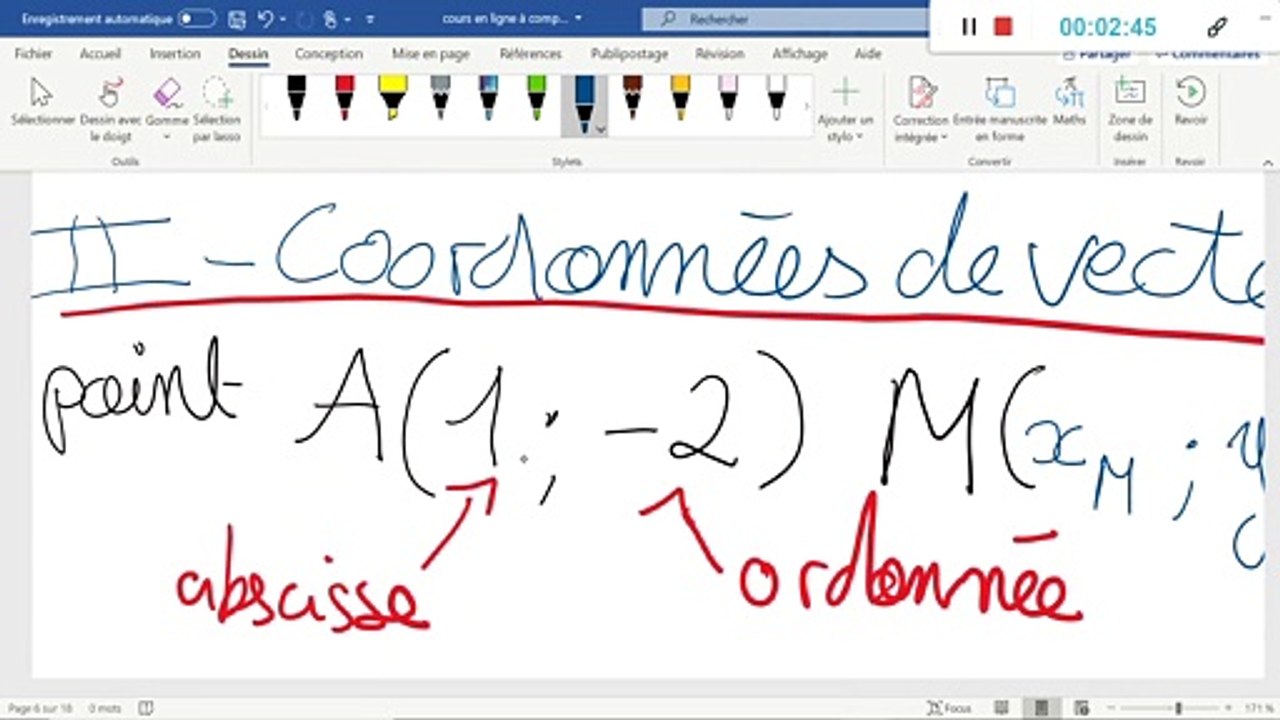 Enregistrement automatique
cours en ligne à comp...
Rechercher
00:02:45
Fichier Accueil Insertion Dessin Conception Mise en page Références Publipostage Révision Affichage Aide Partager Commentaires
Sélectionner Dessin avec le doigt Gomme Sélection par lasso Ajouter un stylo Correction intégrée Entrée manuscrite en forme Maths Zone de dessin Revoir
Outils Stylets Convertir Insérer Revoir
II - Coordonnées de vecte
point A(1 ; -2) M(x_M ; y
abscisse ordonnée
Page 6 sur 18 0 mots Focus 171 %